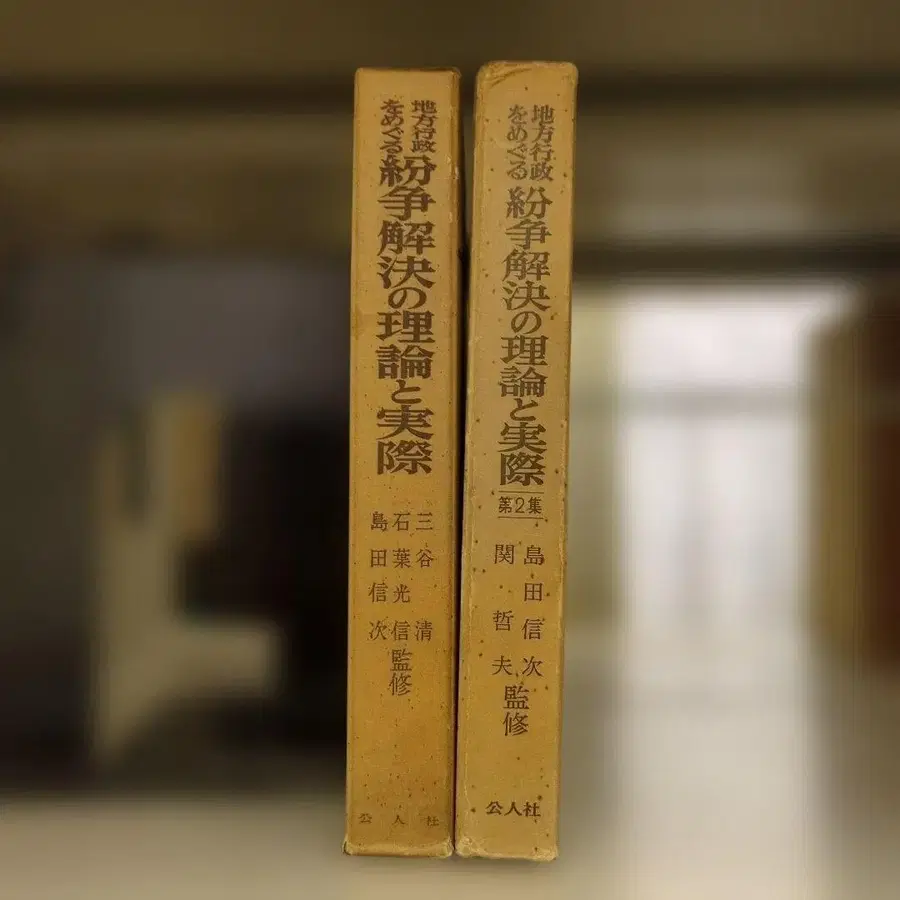 地方行政
をめぐる
紛争解決の理論と実際
三谷清
石葉光信
島田信次
監修
公人社
地方行政
をめぐる
紛争解決の理論と実際
第2集
島田信次
関哲夫
監修
公人社